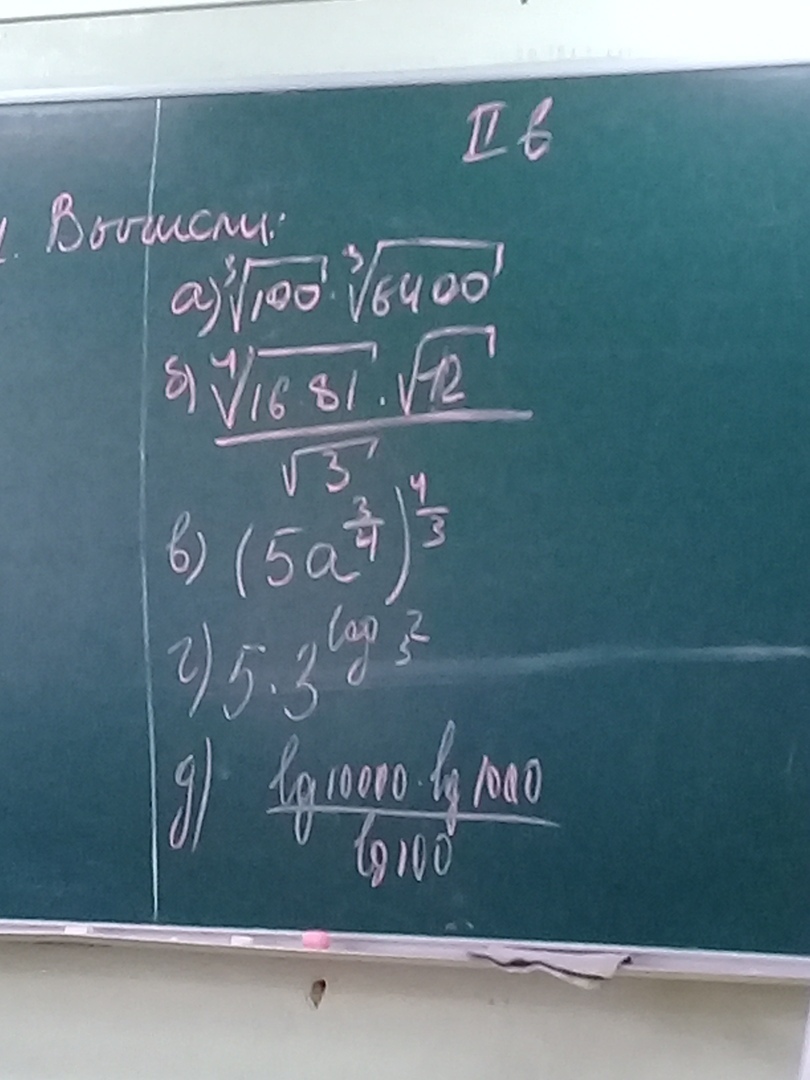 II в
1. Вычисли:
а) ∛100 · ∛6400
б) ∜(16 81) · √12 / √3
в) (5a^(3/4))^(4/3)
г) 5 · 3^(log₃ 2)
д) lg 10000 · lg 1000 / lg 100